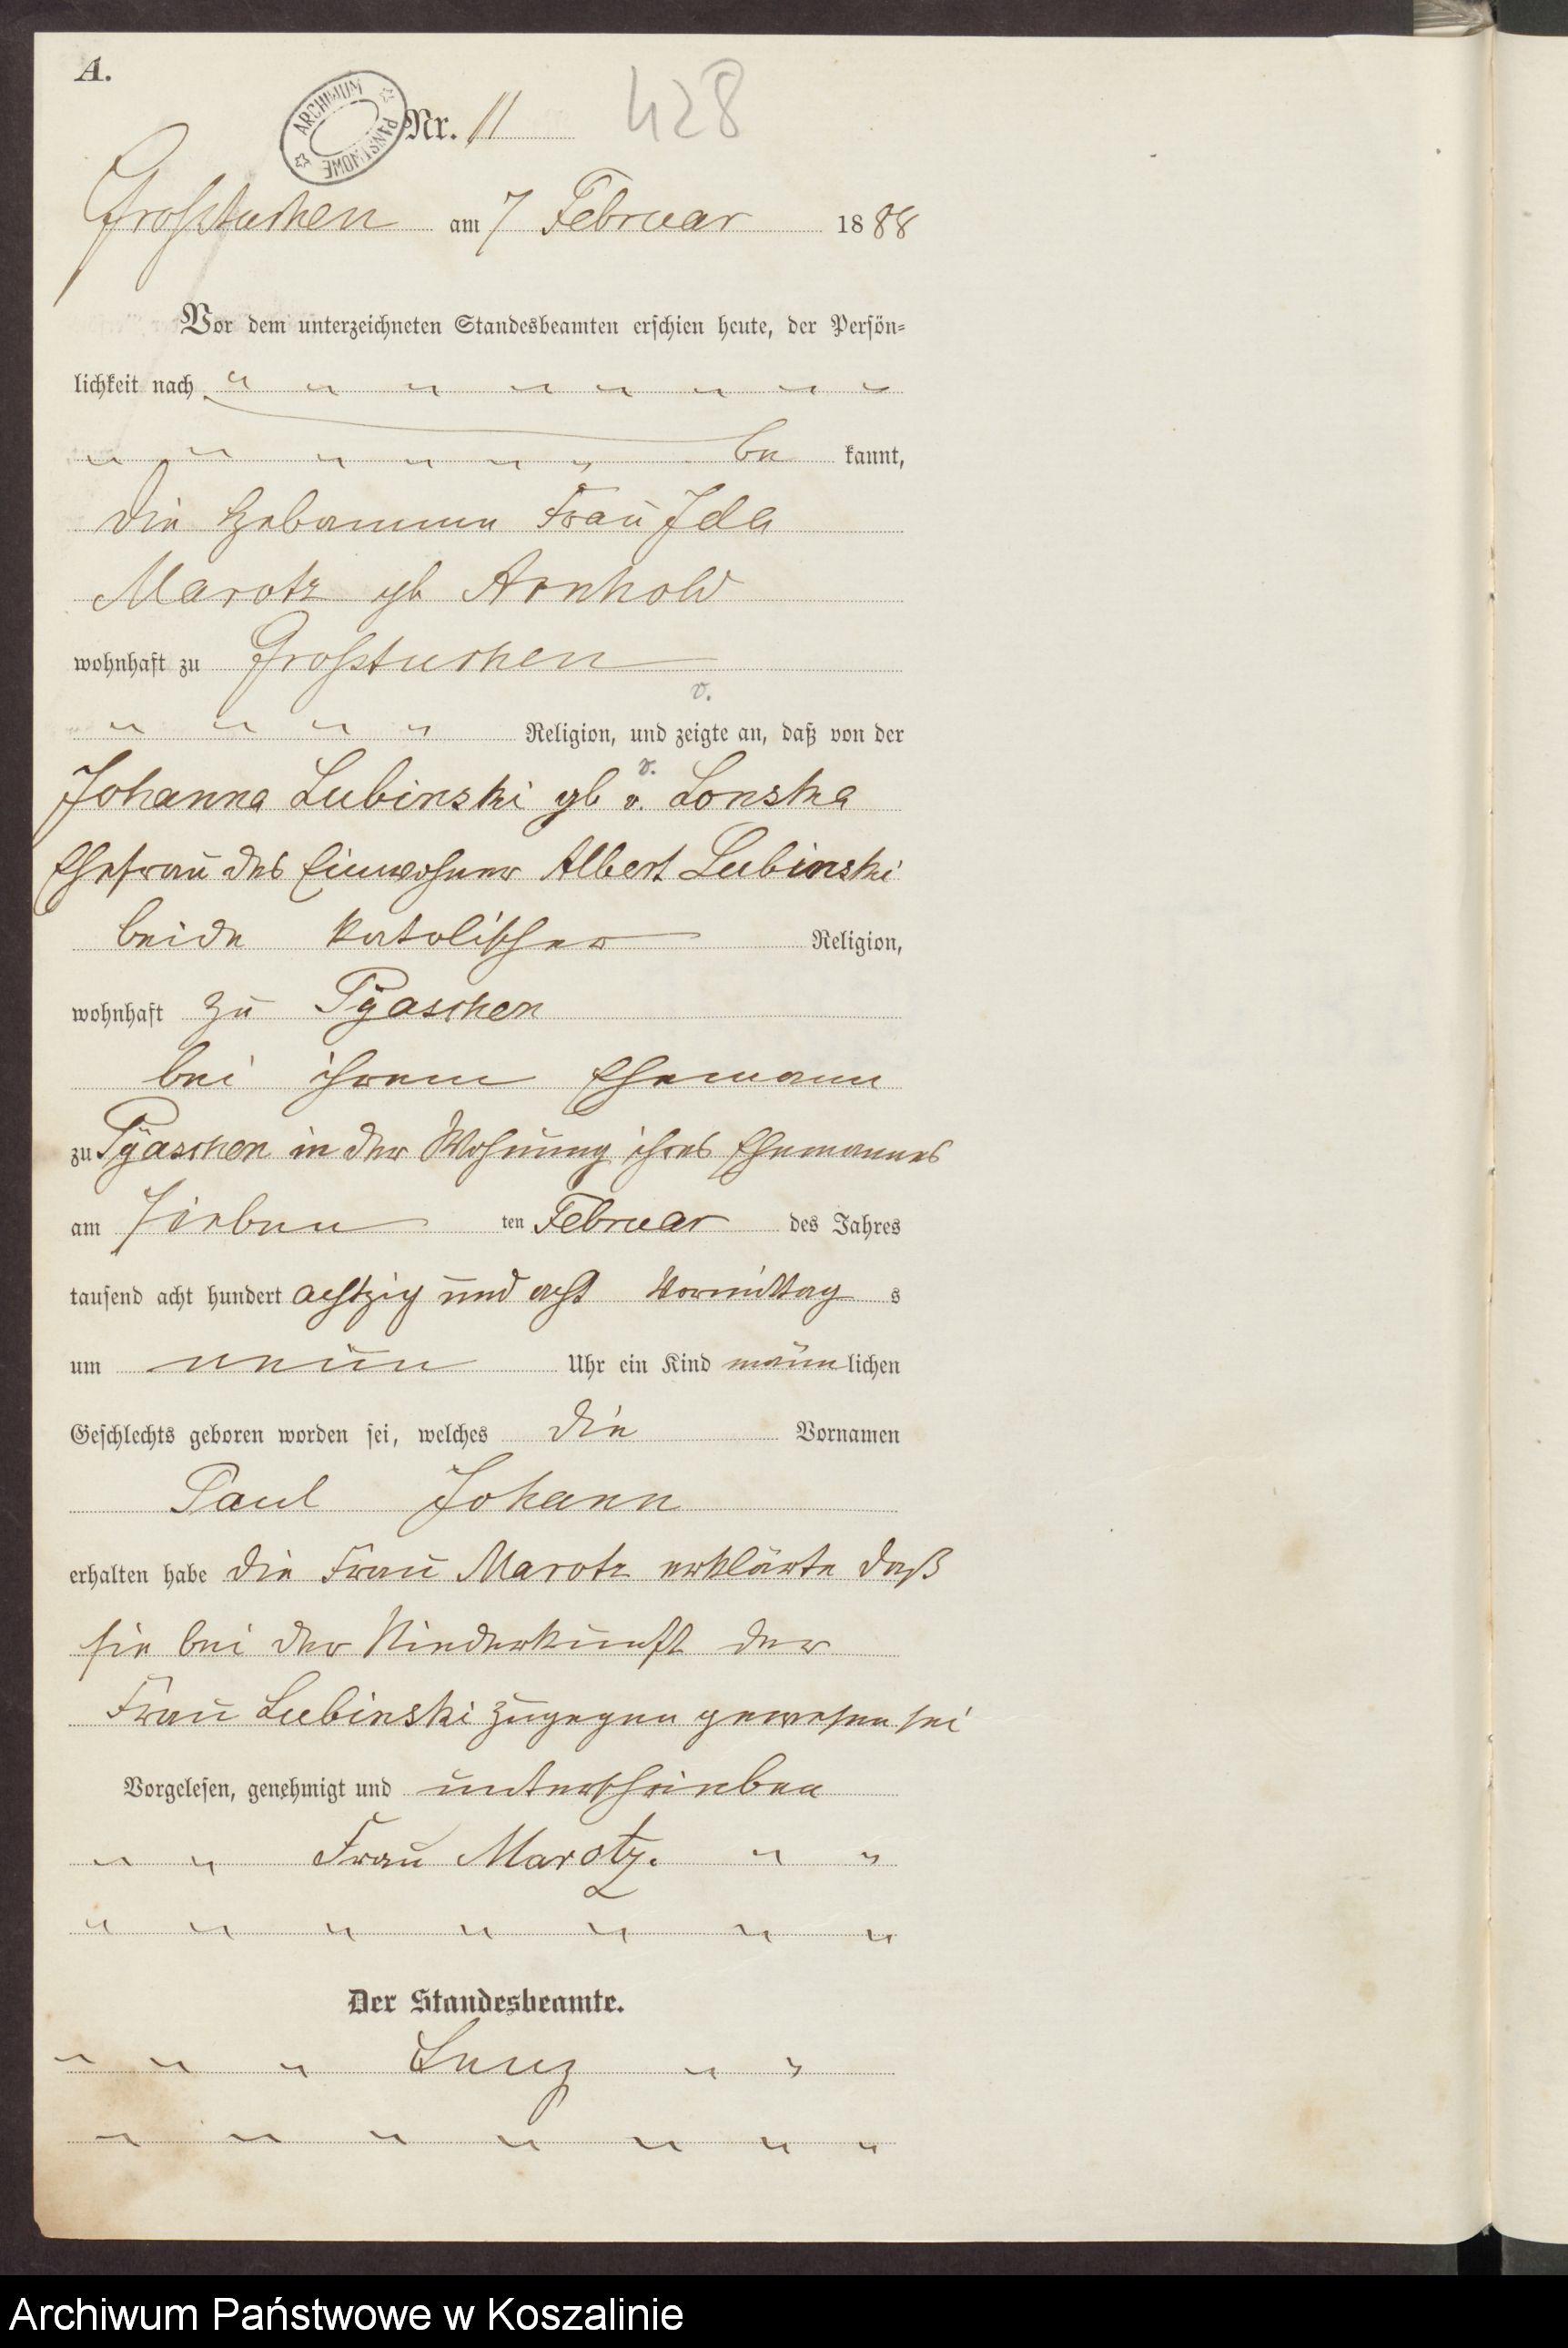 A.
ARCHIWUM PAŃSTWOWE
Nr. 11
428
Großtuchen am 7 Februar 1888
Vor dem unterzeichneten Standesbeamten erschien heute, der Persön-
lichkeit nach
be kannt,
die Hebamme Frau Ida
Marotz gb Arnhold
wohnhaft zu Großtuchen
v.
Religion, und zeigte an, daß von der
v.
Johanna Lubinski gb v. Lonska
Ehefrau des Einwohner Albert Lubinski
beide katolischer Religion,
wohnhaft zu Pÿaschen
bei ihrem Ehemann
zu Pÿaschen in der Wohnung ihres Ehemannes
am Sieben ten Februar des Jahres
tausend acht hundert achtzig und acht Vormittag s
um neun Uhr ein Kind männlichen
Geschlechts geboren worden sei, welches die Vornamen
Paul Johann
erhalten habe die Frau Marotz erklärte daß
sie bei der Niederkunft der
Frau Lubinski zugegen gewesen sei
Vorgelesen, genehmigt und unterschrieben
Frau Marotz.
Der Standesbeamte.
Archiwum Państwowe w Koszalinie